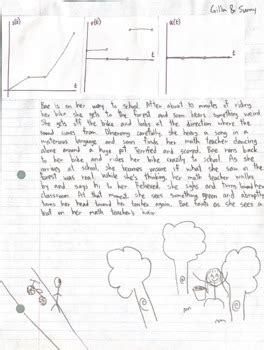 Gilla & Sunny
s(t) v(t) a(t)
t t t
Bae is on her way to school. After about 10 minutes of riding
her bike she gets to the forest and soon hears something weird
She gets off the bike and looks at the direction where the
sound comes from. Observing carefully she hears a song in a
mysterious language and soon finds her math teacher dancing
alone around a huge pot. Terrified and scarped. Bae runs back
to her bike and rides her bike crazily to school. As she
arrives at school, she becomes unsure if what she saw in the
forest was real. While she's thinking, her math teacher walks
by and says hi to her. Relieved, she sighs and turns toward her
classroom. At that moment she sees something green and abruptly
turns her head toward her teacher again. Bae faints as she sees a
leaf on her math teacher's hair.